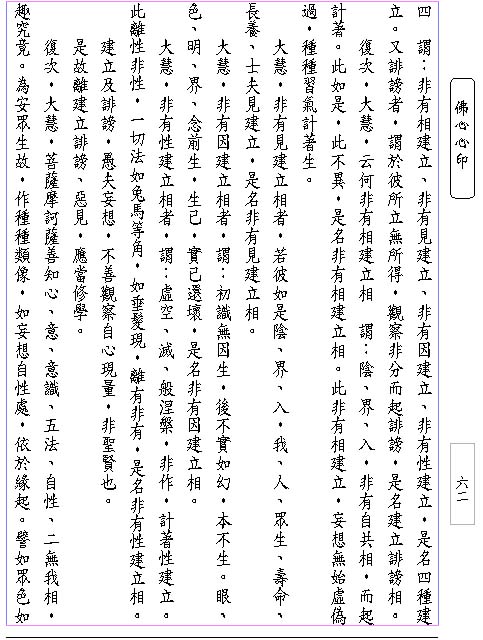 佛心心印
六二
四　謂：非有相建立、非有見建立、非有因建立、非有性建立，是名四種建
立。又誹謗者，謂於彼所立無所得，觀察非分而起誹謗，是名建立誹謗相。
復次，大慧，云何非有相建立相　謂：陰、界、入，非有自共相，而起
計著。此如是，此不異，是名非有相建立相。此非有相建立，妄想無始虛偽
過，種種習氣計著生。
大慧，非有見建立相者，若彼如是陰、界、入，我、人、眾生、壽命、
長養、士夫見建立，是名非有見建立相。
大慧，非有因建立相者，謂：初識無因生，後不實如幻，本不生。眼、
色、明、界、念前生，生已，實已還壞，是名非有因建立相。
大慧，非有性建立相者，謂：虛空、滅、般涅槃，非作，計著性建立。
此離性非性，一切法如兔馬等角，如垂髮現，離有非有，是名非有性建立相。
建立及誹謗，愚夫妄想，不善觀察自心現量，非聖賢也。
是故離建立誹謗、惡見，應當修學。
復次，大慧，菩薩摩訶薩善知心、意、意識、五法、自性、二無我相，
趣究竟。為安眾生故，作種種類像，如妄想自性處，依於緣起。譬如眾色如